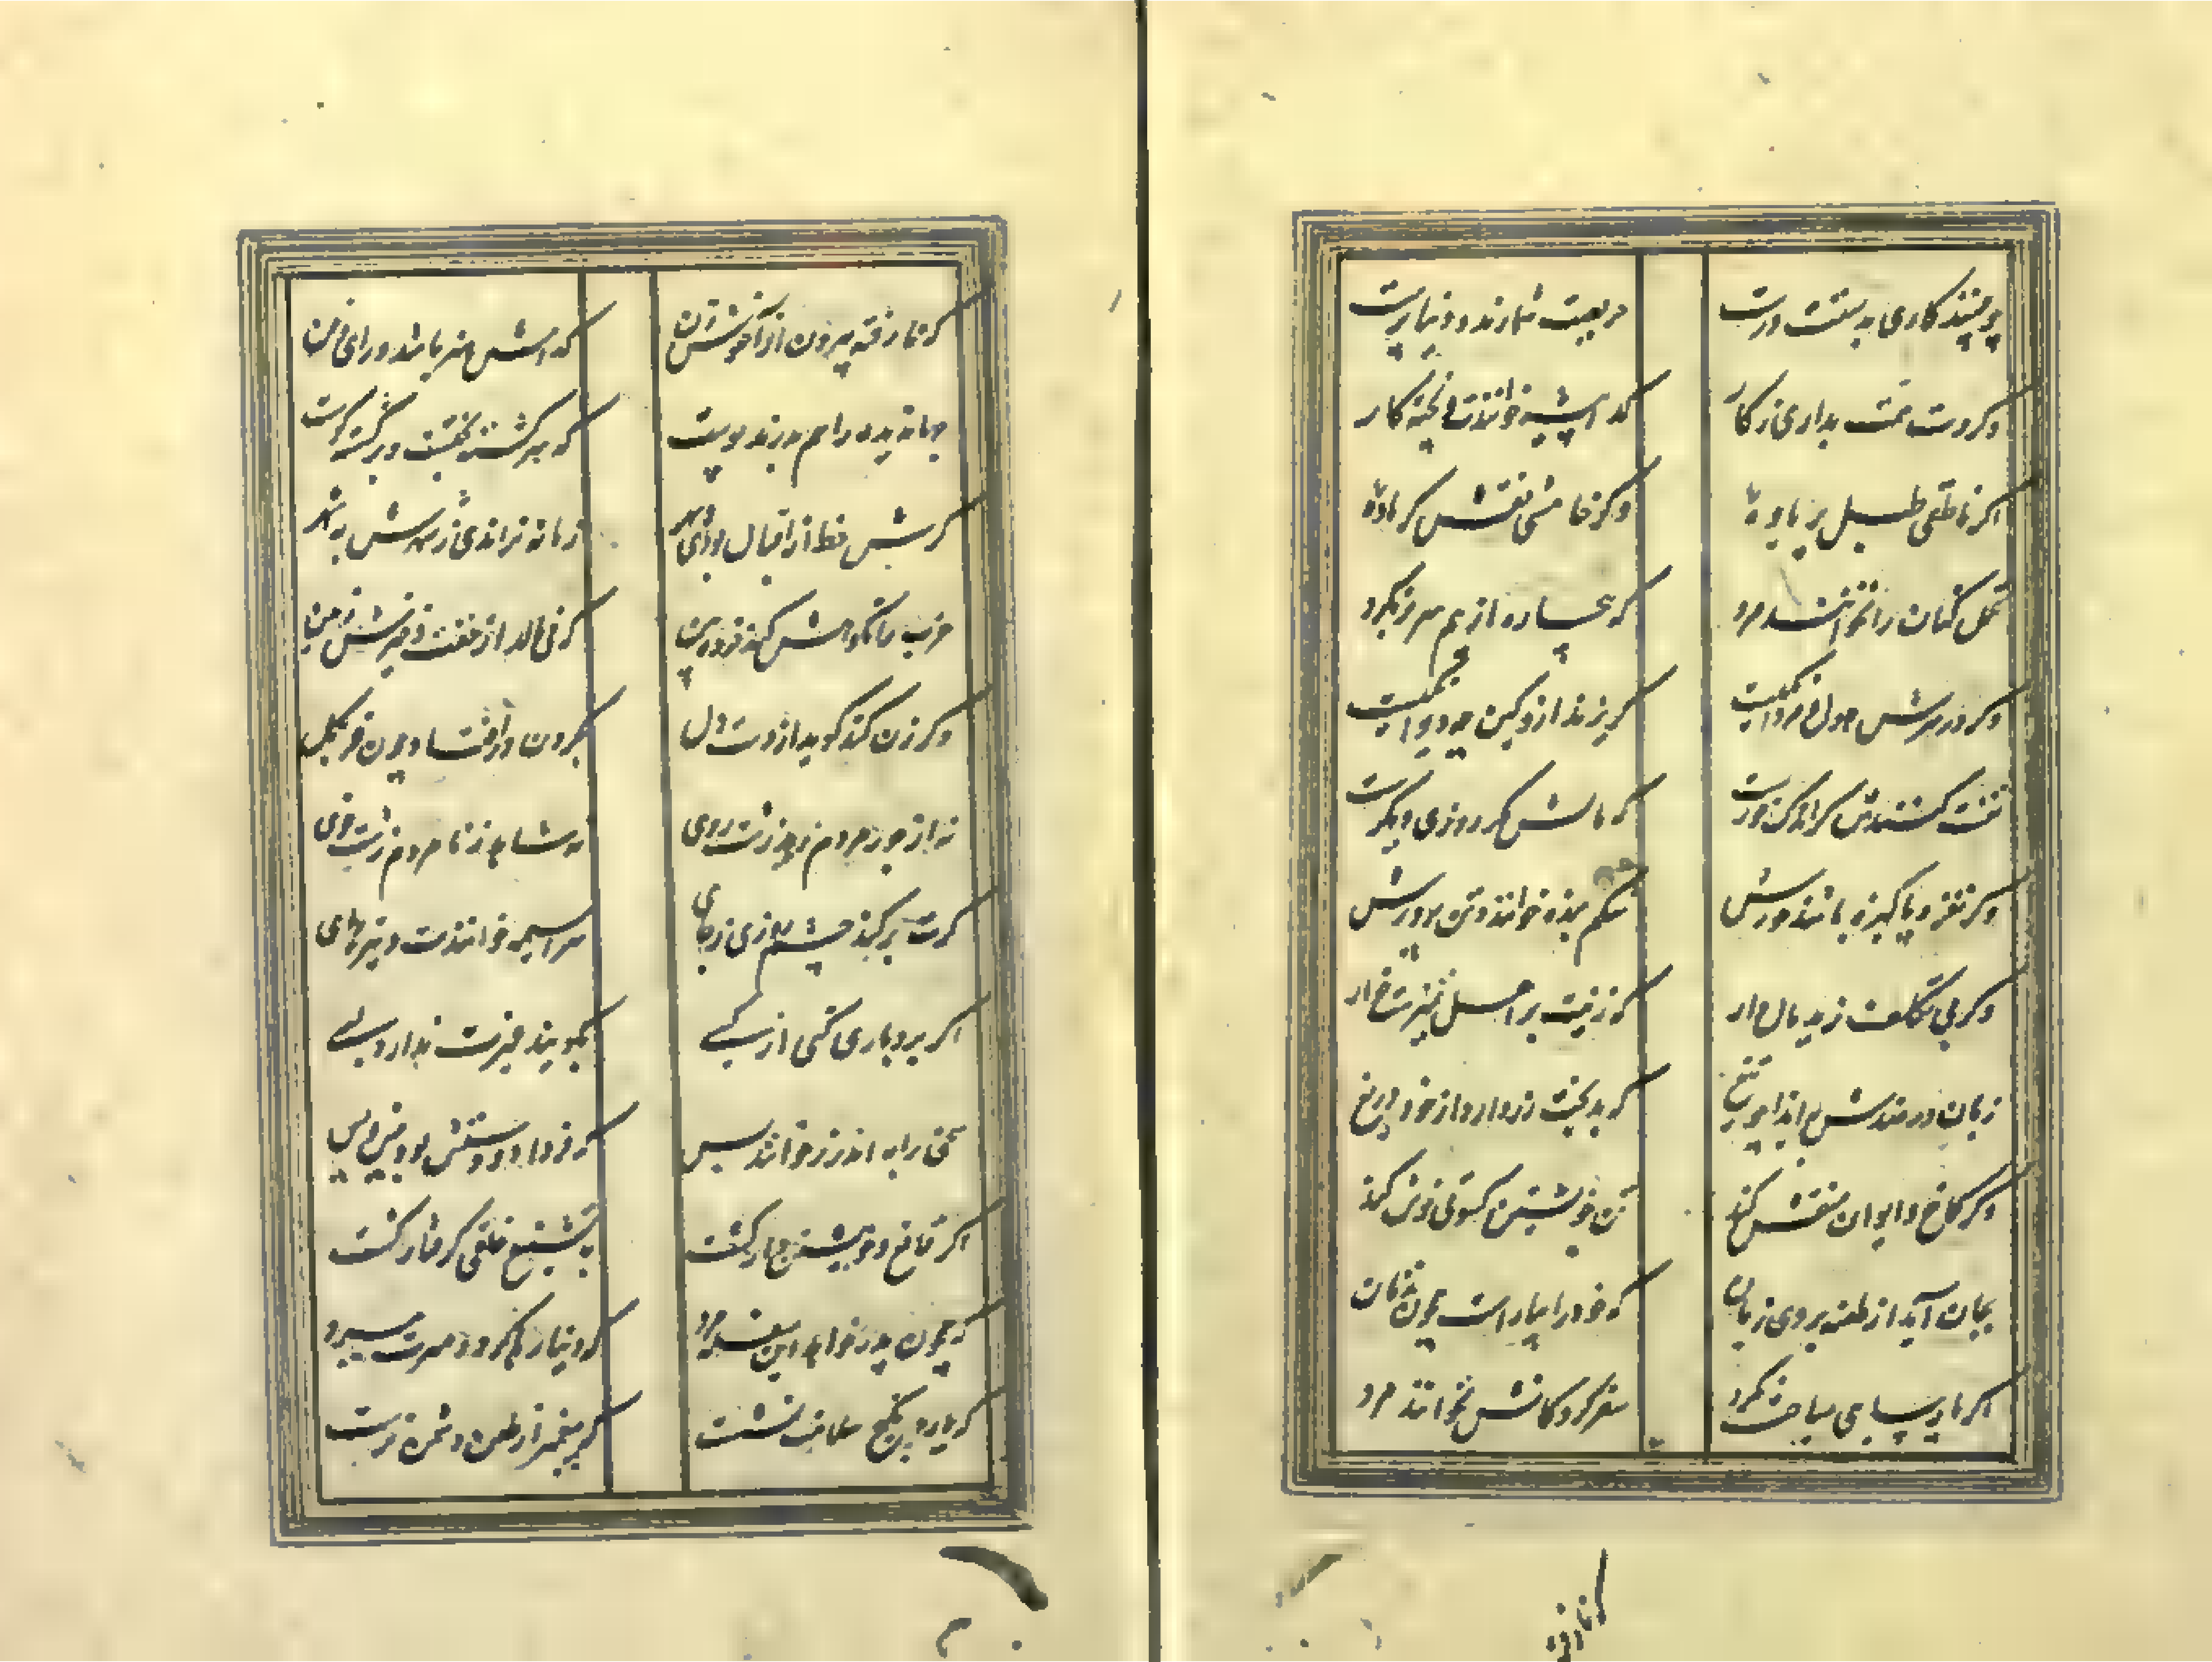 چو بینند کاری بدستت درست حریصت شمارند و دنیا پرست
وگر دست همت بداری ز کار گدا پیشه خوانندت و پخته کار
اگر ناطقی طبل پر یاوه وگر خامشی نقش گرماوه
تحمل کنان را نخوانند مرد که بیچاره از بیم سر بر نکرد
وگر در سرش هول و مردانگیست گریزند ازو کین چه دیوانگیست
تعنت کنندش گر اندک خورست که مالش مگر روزی دیگرست
وگر نغز و پاکیزه باشد خورش شکم بنده خوانند و تن پرورش
وگر بی تکلف زید مال دار که زینت بر اهل تمیزست عار
زبان در نهندش به ایذا چو تیغ که بدبخت زر دارد از خود دریغ
وگر کاخ و ایوان منقش کند تن خویشتن کسوتی خوش کند
بجان آید از طعنه بر وی زنان که خود را بیاراست همچون زنان
اگر پارسایی سیاحت نکرد سفر کردگانش نخوانند مرد
که نارفته
که نارفته بیرون از آغوش زن کدامش هنر باشد و رای و فن
جهاندیده را هم بدرند پوست که سرگشته بخت برگشته اوست
گرش حظ از اقبال بودی و بهر زمانه نراندی ز شهرش به شهر
عزب را نکوهش کند خرده بین که می‌لرزد از خفت و خیزش زمین
وگر زن کند گوید از دست دل بگردن درافتاد چون خر بگل
نه از جور مردم رهد زشت روی نه شاهد ز نامردم زشت گوی
گرت برکند خشم روزی ز جای سراسیمه خوانندت و تیره رای
اگر بردباری کنی از کسی بگویند غیرت ندارد بسی
سخی را به اندرز خوانند بس که فردا دو دستت بود پیش و پس
اگر قانع و خویشتن دار گشت به تشنیع خلقی گرفتار گشت
که همچون پدر خواهد این سفله مرد که دنیا رها کرد و حسرت ببرد
که یارد به کنج سلامت نشست که پیغمبر از طعن دشمن نرست